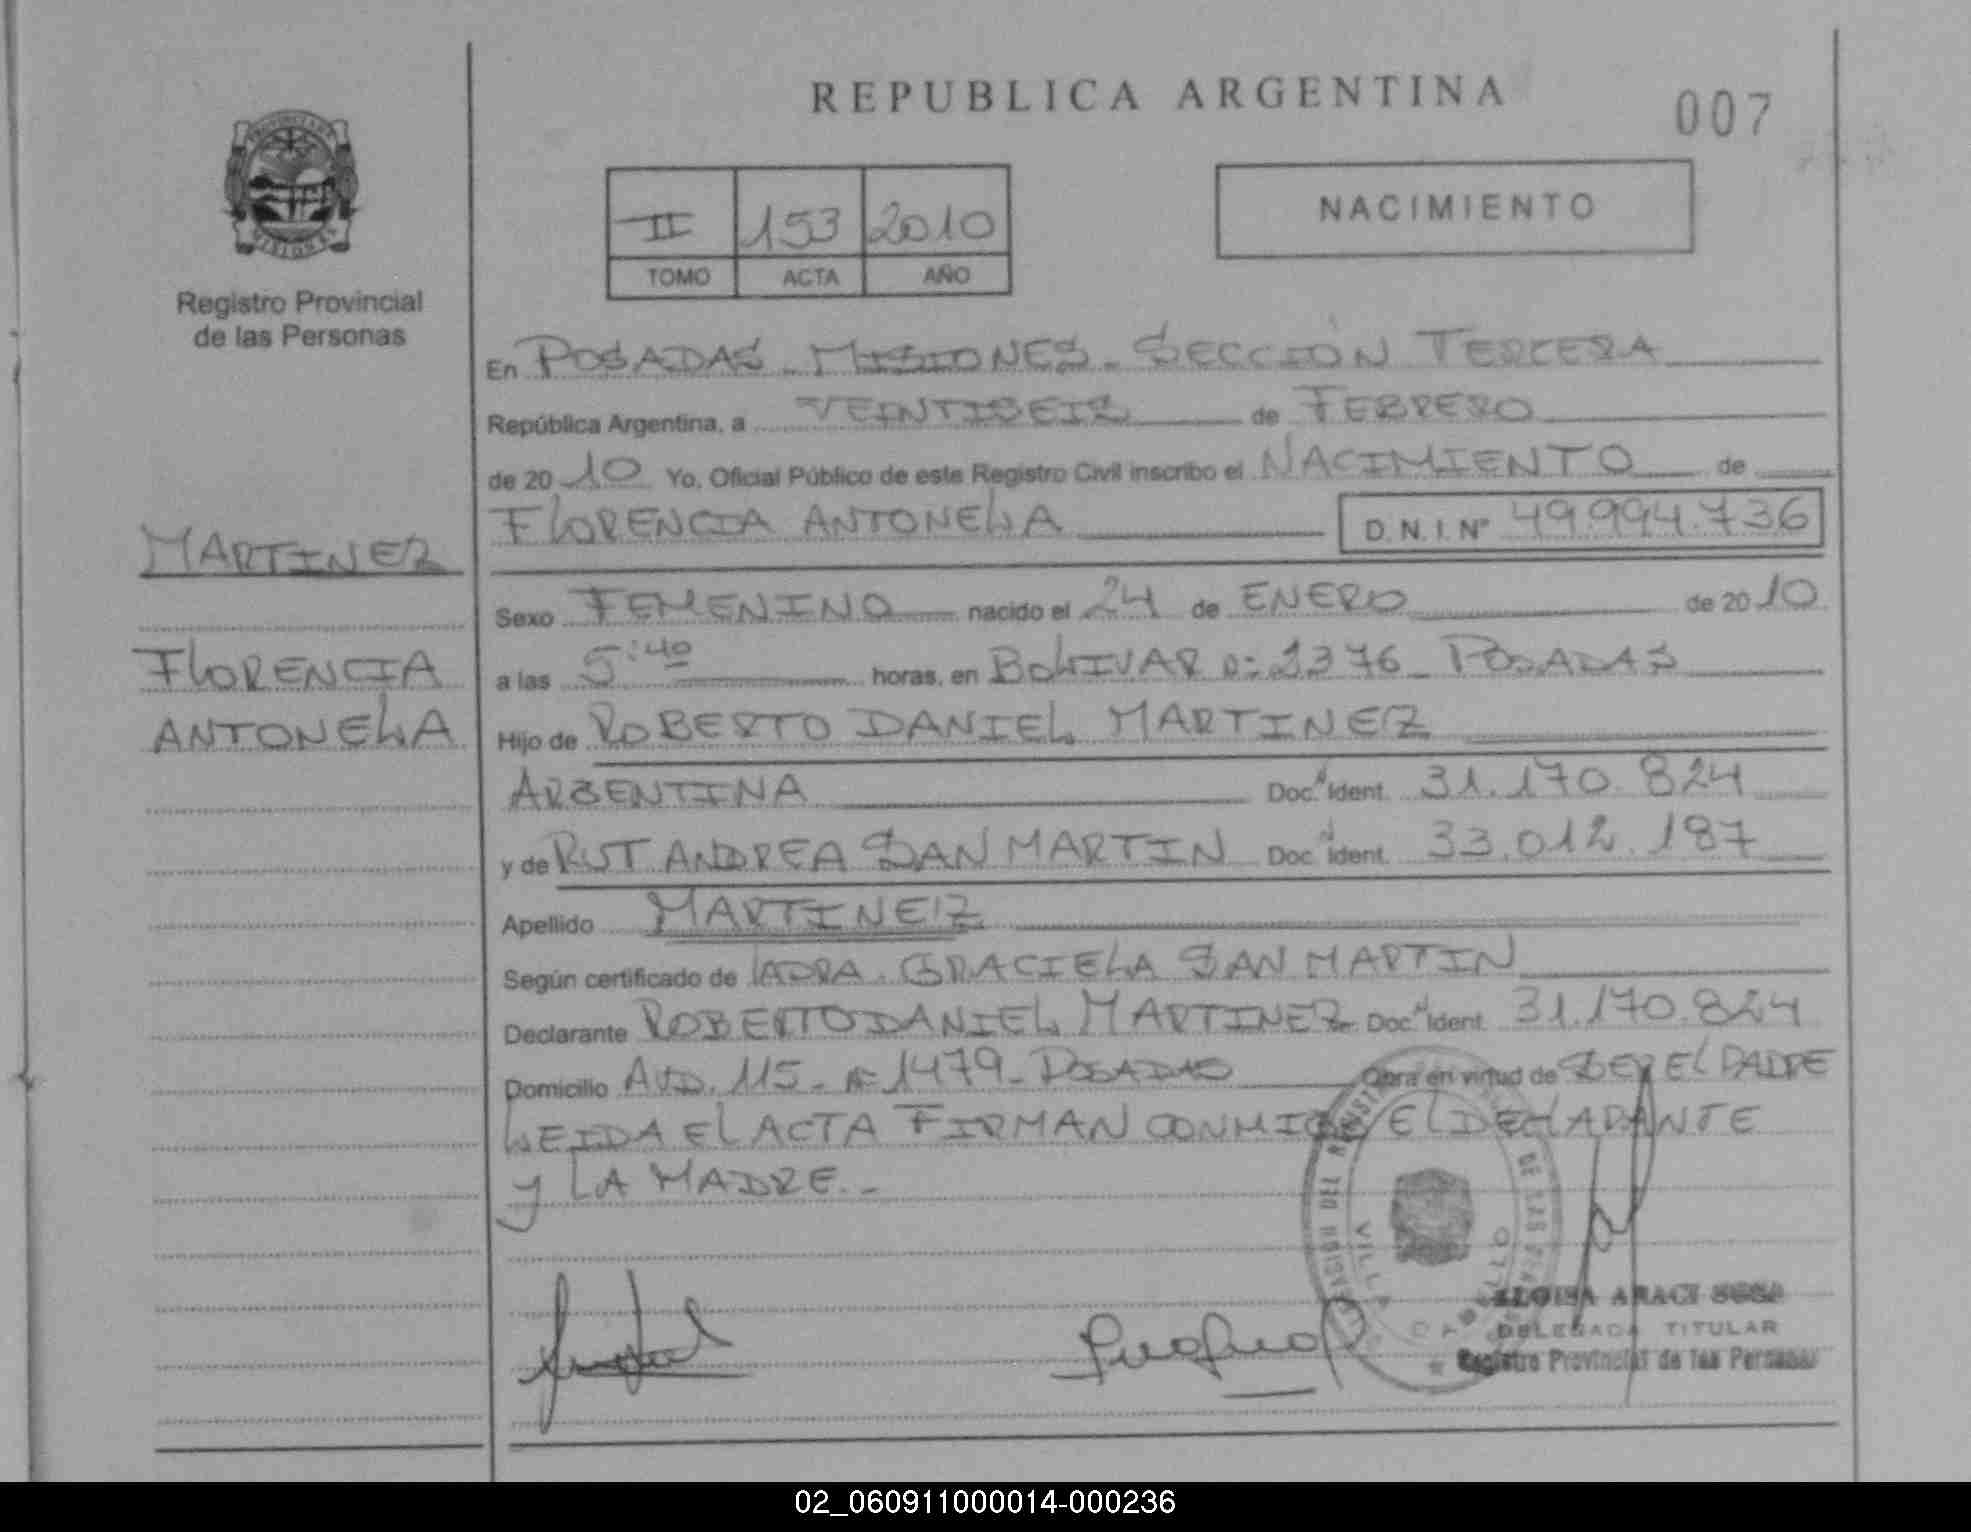 REPUBLICA ARGENTINA
007
PROVINCIA DE
MISIONES
Registro Provincial
de las Personas
II 153 2010
TOMO ACTA AÑO
NACIMIENTO
En POSADAS - MISIONES - SECCIÓN TERCERA
República Argentina, a VEINTISEIS de FEBRERO
de 20 10 Yo, Oficial Público de este Registro Civil inscribo el NACIMIENTO de
FLORENCIA ANTONELLA D.N.I. Nº 49.994.736
MARTINEZ
FLORENCIA
ANTONELLA
Sexo FEMENINO nacido el 24 de ENERO de 20 10
a las 5:40 horas, en BOLIVAR Nº 2376 - POSADAS
Hijo de ROBERTO DANIEL MARTINEZ
ARGENTINA Doc. Ident. 31.170.824
y de RUT ANDREA SAN MARTIN Doc. Ident. 33.012.187
Apellido MARTINEZ
Según certificado de GRACIELA SAN MARTIN
Declarante ROBERTO DANIEL MARTINEZ Doc. Ident. 31.170.824
Domicilio AVD. 115 - Nº 1479 - POSADAS Obra en virtud de SER EL PADRE
LEIDA EL ACTA FIRMAN CONMIGO EL DECLARANTE
Y LA MADRE.-
DELEGADA TITULAR
Registro Provincial de las Personas
02_060911000014-000236